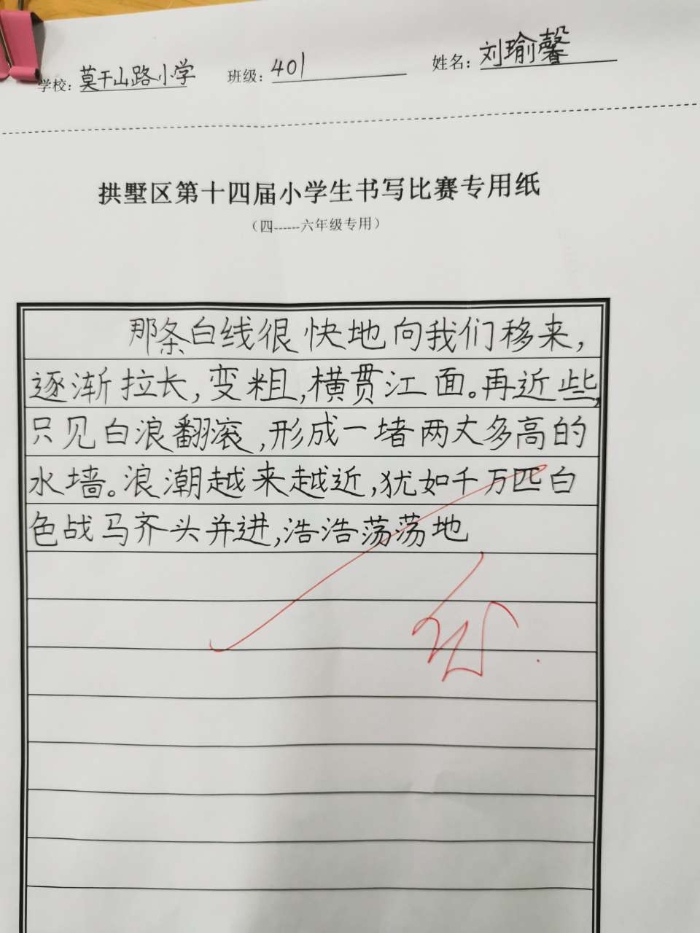 学校：莫干山路小学 班级：401 姓名：刘瑜馨
拱墅区第十四届小学生书写比赛专用纸
（四------六年级专用）
那条白线很快地向我们移来，
逐渐拉长，变粗，横贯江面。再近些，
只见白浪翻滚，形成一堵两丈多高的
水墙。浪潮越来越近，犹如千万匹白
色战马齐头并进，浩浩荡荡地